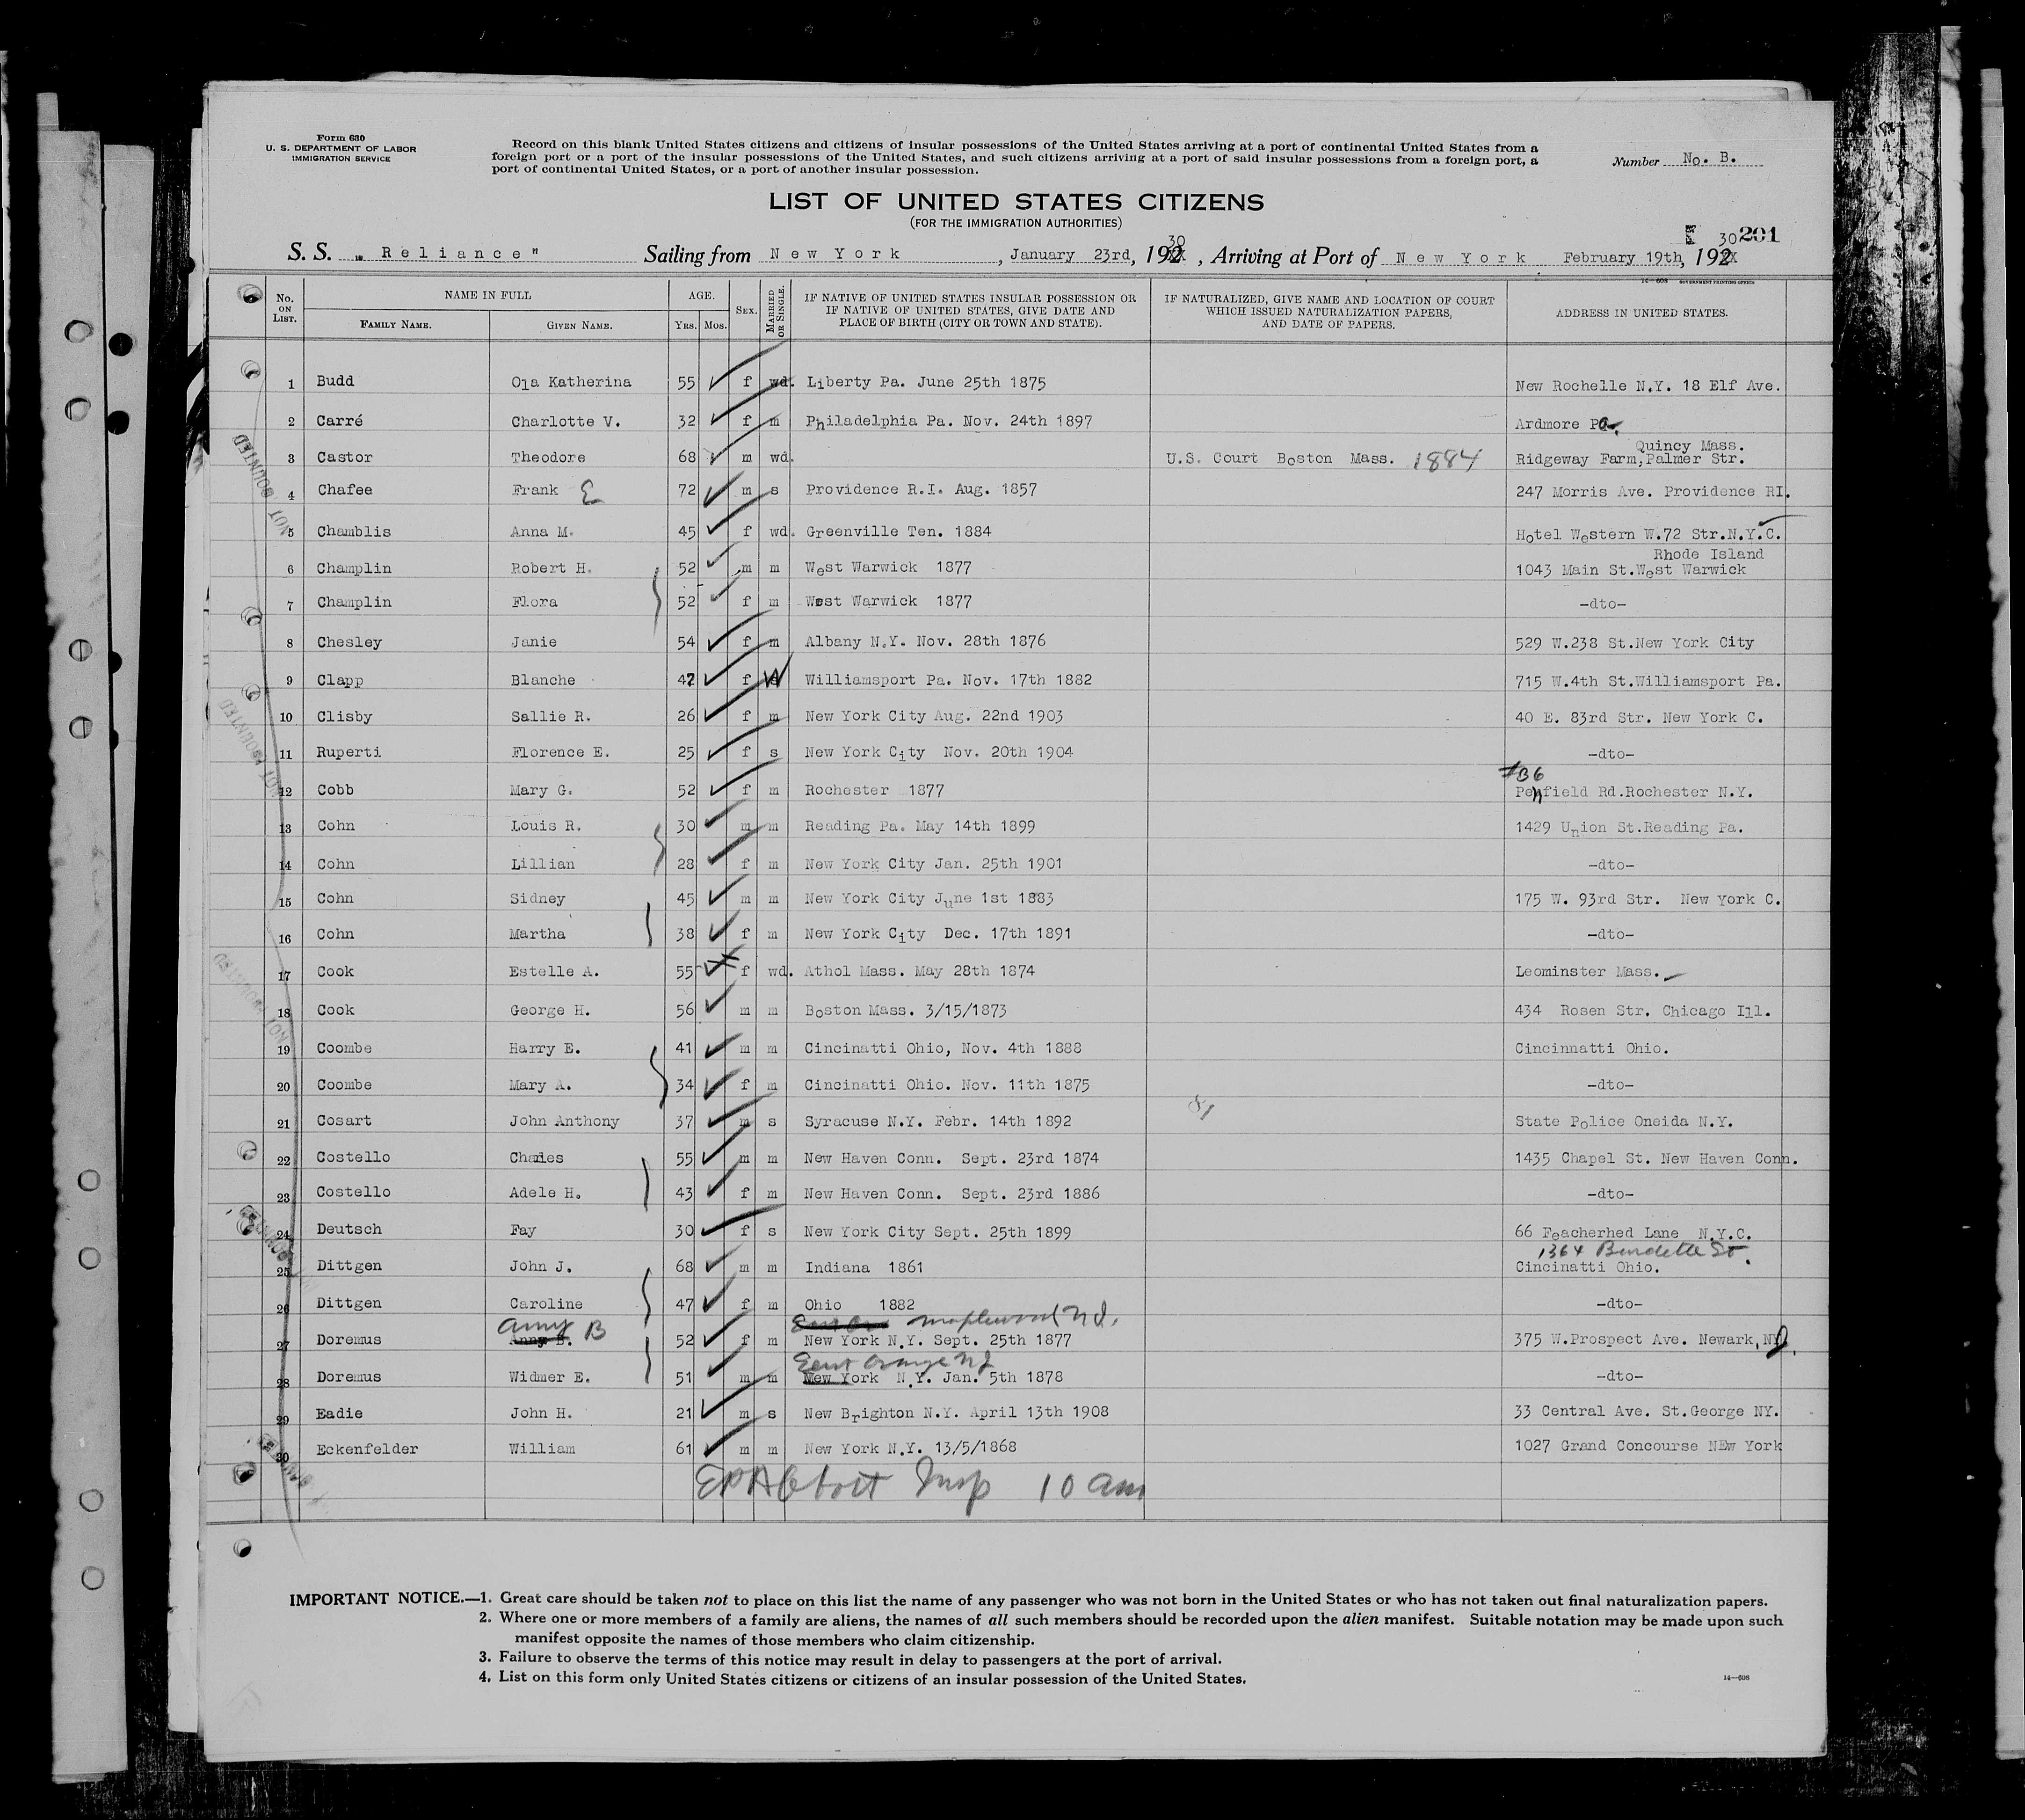 Form 630
U. S. DEPARTMENT OF LABOR
IMMIGRATION SERVICE
Record on this blank United States citizens and citizens of insular possessions of the United States arriving at a port of continental United States from a
foreign port or a port of the insular possessions of the United States, and such citizens arriving at a port of said insular possessions from a foreign port, a
port of continental United States, or a port of another insular possession.
Number No. B.
LIST OF UNITED STATES CITIZENS
(FOR THE IMMIGRATION AUTHORITIES)
201
S. S. "Reliance" Sailing from New York, January 23rd, 1930, Arriving at Port of New York February 19th, 1930
14—608 GOVERNMENT PRINTING OFFICE
No. ON LIST. NAME IN FULL FAMILY NAME. GIVEN NAME. AGE. YRS. MOS. SEX. MARRIED OR SINGLE. IF NATIVE OF UNITED STATES INSULAR POSSESSION OR IF NATIVE OF UNITED STATES, GIVE DATE AND PLACE OF BIRTH (CITY OR TOWN AND STATE). IF NATURALIZED, GIVE NAME AND LOCATION OF COURT WHICH ISSUED NATURALIZATION PAPERS, AND DATE OF PAPERS. ADDRESS IN UNITED STATES.
1 Budd Ola Katherina 55 f wd. Liberty Pa. June 25th 1875 New Rochelle N.Y. 18 Elf Ave.
2 Carré Charlotte V. 32 f m Philadelphia Pa. Nov. 24th 1897 Ardmore Pa.
Quincy Mass.
3 Castor Theodore 68 m wd. U.S. Court Boston Mass. 1884 Ridgeway Farm, Palmer Str.
4 Chafee Frank E 72 m s Providence R.I. Aug. 1857 247 Morris Ave. Providence RI.
5 Chamblis Anna M. 45 f wd. Greenville Ten. 1884 Hotel Western W.72 Str.N.Y.C.
Rhode Island
6 Champlin Robert H. 52 m m West Warwick 1877 1043 Main St.West Warwick
7 Champlin Flora 52 f m West Warwick 1877 -dto-
8 Chesley Janie 54 f m Albany N.Y. Nov. 28th 1876 529 W.238 St.New York City
9 Clapp Blanche 47 f W Williamsport Pa. Nov. 17th 1882 715 W.4th St.Williamsport Pa.
10 Clisby Sallie R. 26 f m New York City Aug. 22nd 1903 40 E. 83rd Str. New York C.
11 Ruperti Florence E. 25 f s New York City Nov. 20th 1904 -dto-
#36
12 Cobb Mary G. 52 f m Rochester 1877 Penfield Rd.Rochester N.Y.
13 Cohn Louis R. 30 m m Reading Pa. May 14th 1899 1429 Union St.Reading Pa.
14 Cohn Lillian 28 f m New York City Jan. 25th 1901 -dto-
15 Cohn Sidney 45 m m New York City June 1st 1883 175 W. 93rd Str. New York C.
16 Cohn Martha 38 f m New York City Dec. 17th 1891 -dto-
17 Cook Estelle A. 55 f wd. Athol Mass. May 28th 1874 Leominster Mass.
18 Cook George H. 56 m m Boston Mass. 3/15/1873 434 Rosen Str. Chicago Ill.
19 Coombe Harry E. 41 m m Cincinatti Ohio, Nov. 4th 1888 Cincinnatti Ohio.
20 Coombe Mary A. 34 f m Cincinatti Ohio. Nov. 11th 1875 -dto-
81
21 Cosart John Anthony 37 m s Syracuse N.Y. Febr. 14th 1892 State Police Oneida N.Y.
22 Costello Charles 55 m m New Haven Conn. Sept. 23rd 1874 1435 Chapel St. New Haven Conn.
23 Costello Adele H. 43 f m New Haven Conn. Sept. 23rd 1886 -dto-
24 Deutsch Fay 30 f s New York City Sept. 25th 1899 66 Feacherhed Lane N.Y.C.
1364 Burdette St.
25 Dittgen John J. 68 m m Indiana 1861 Cincinatti Ohio.
26 Dittgen Caroline 47 f m Ohio 1882 -dto-
Amy B Maplewood N.J.
27 Doremus Anny B. 52 f m New York N.Y. Sept. 25th 1877 375 W.Prospect Ave. Newark, NJ.
East Orange NJ
28 Doremus Widmer E. 51 m m New York N.Y. Jan. 5th 1878 -dto-
29 Eadie John H. 21 m s New Brighton N.Y. April 13th 1908 33 Central Ave. St.George NY.
30 Eckenfelder William 61 m m New York N.Y. 13/5/1868 1027 Grand Concourse NEw York
EPAbbott Insp 10 am
NOT MOUNTED
NOT MOUNTED
NOT MOUNTED
IMPORTANT NOTICE.—1. Great care should be taken not to place on this list the name of any passenger who was not born in the United States or who has not taken out final naturalization papers.
2. Where one or more members of a family are aliens, the names of all such members should be recorded upon the alien manifest. Suitable notation may be made upon such
manifest opposite the names of those members who claim citizenship.
3. Failure to observe the terms of this notice may result in delay to passengers at the port of arrival.
4. List on this form only United States citizens or citizens of an insular possession of the United States.
14—608